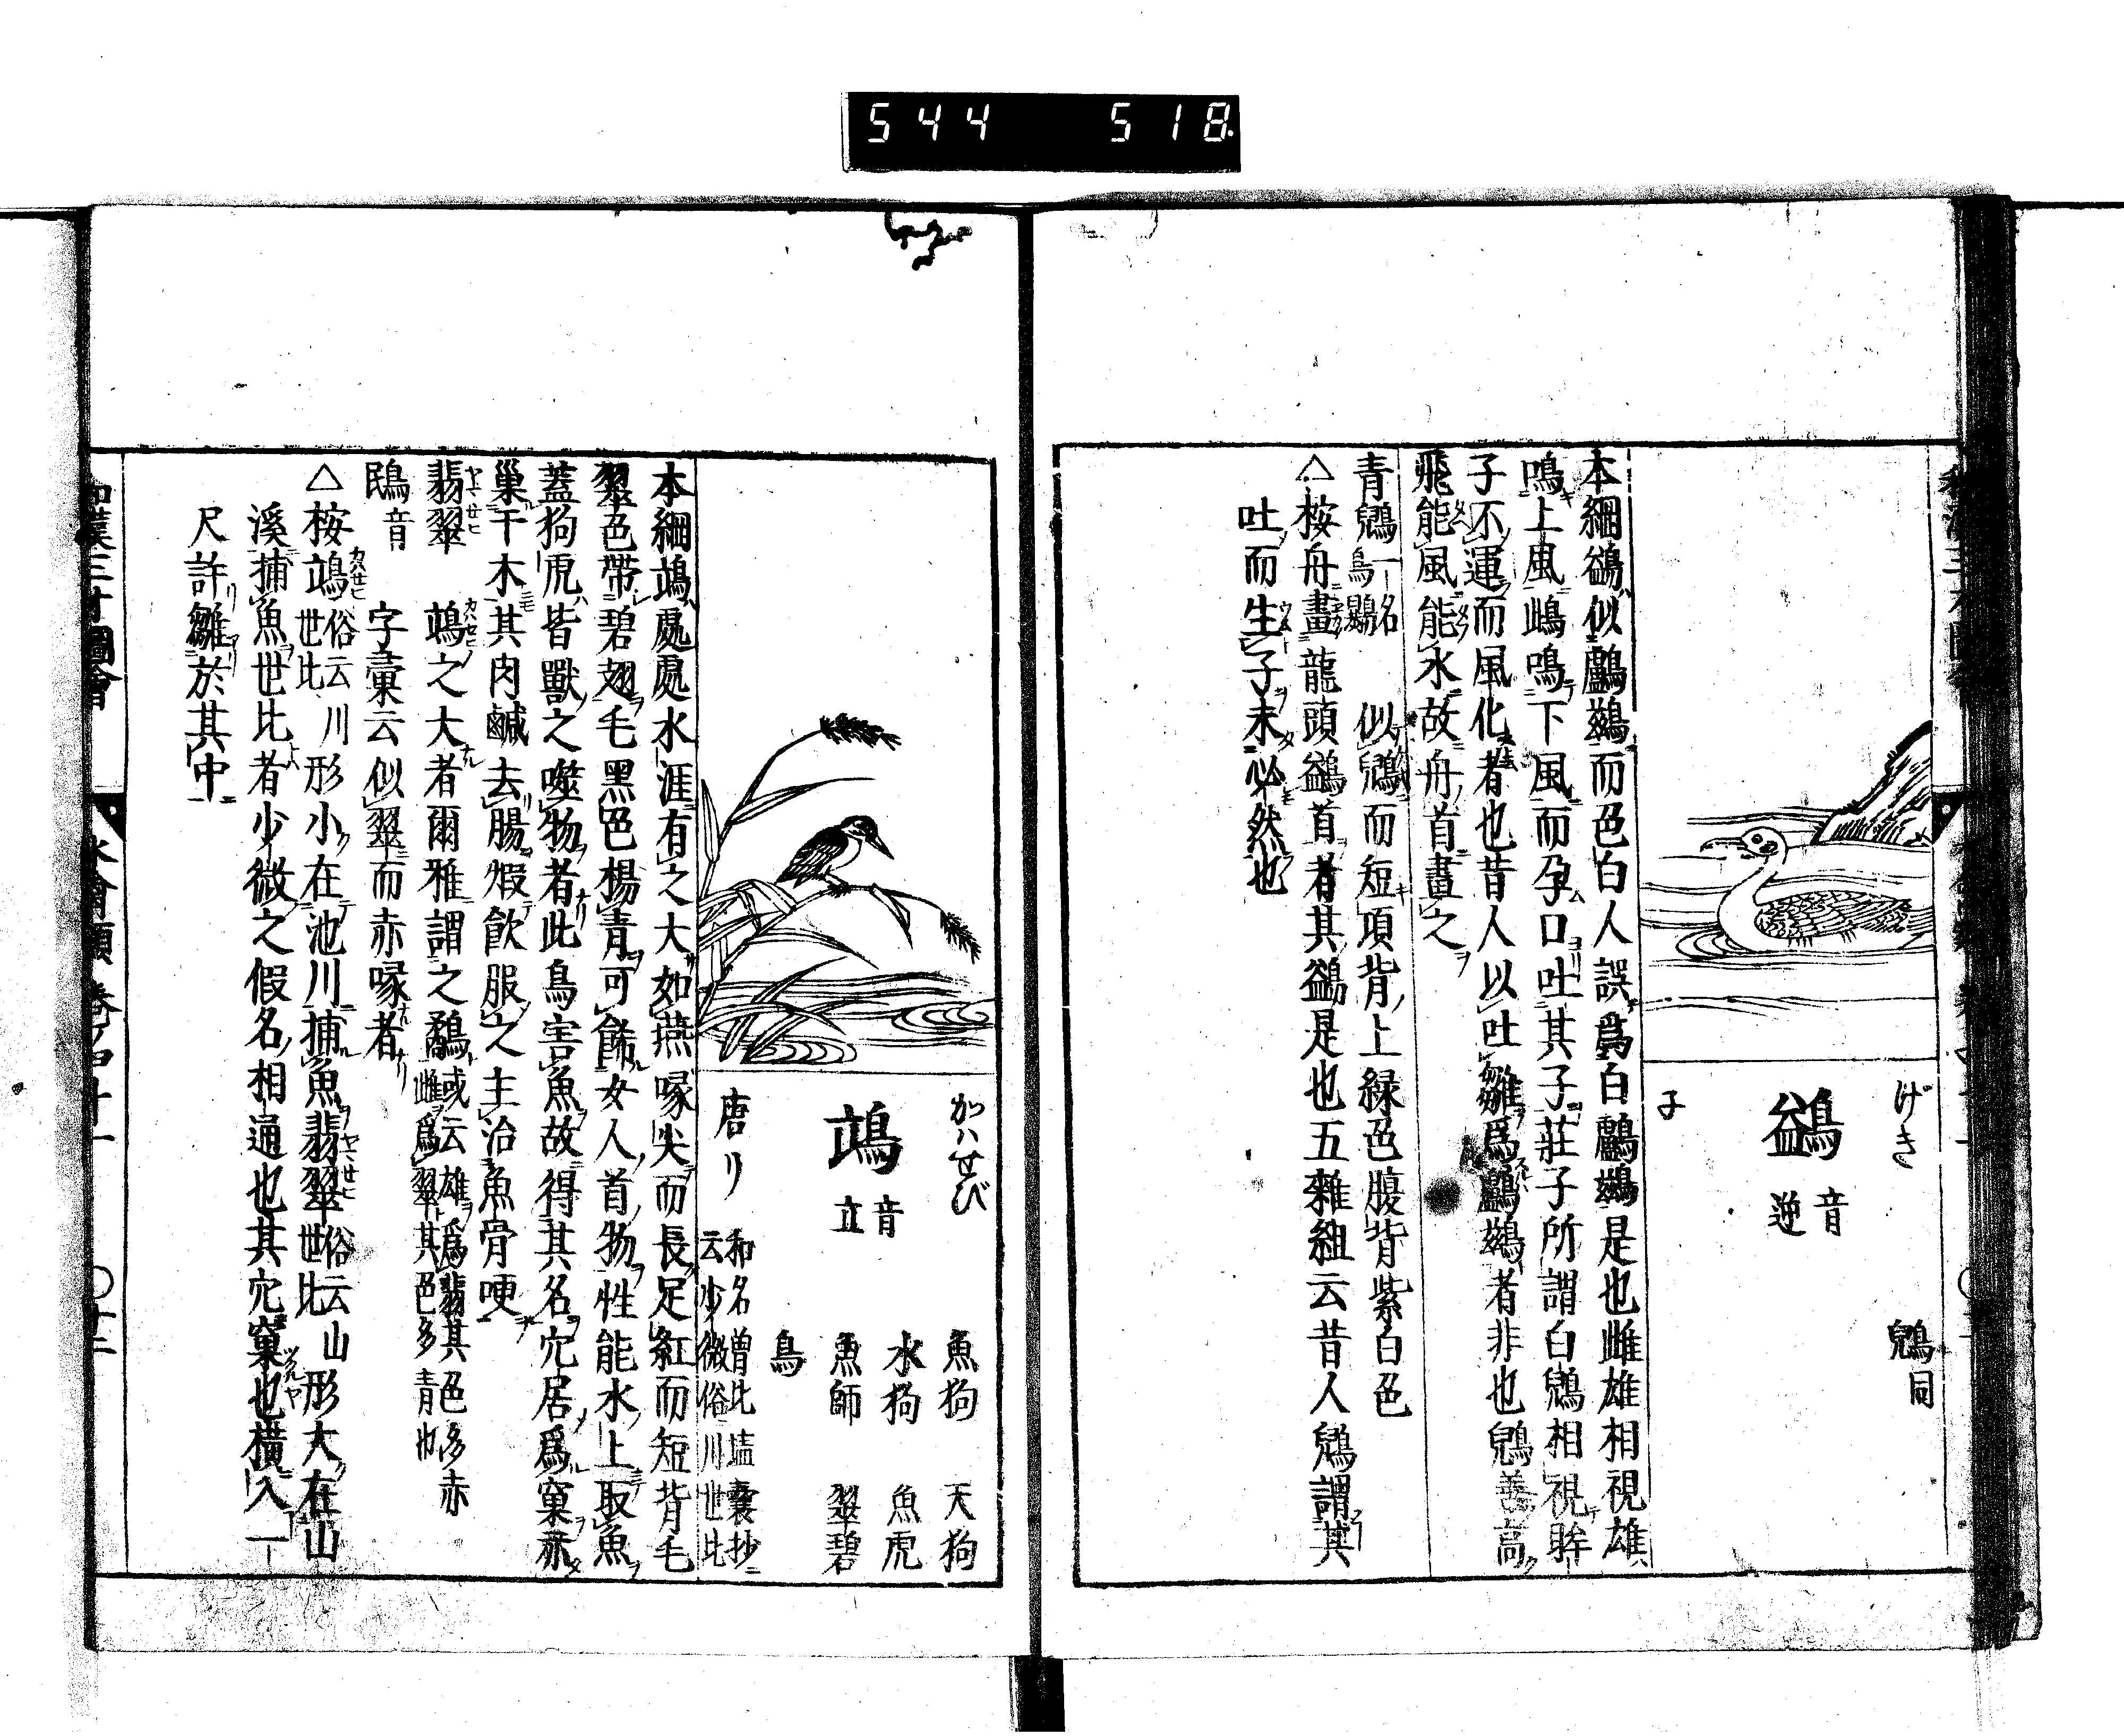 544 518
げき
鷁 音逆
鶃同
子
本綱鷁似鸕鷀而色白人誤爲白鸕鷀是也雌雄相視雄
鳴上風雌鳴下風而孕口吐其子莊子所謂白鶃相視眸
子不運而風化者也昔人以吐雛爲鸕鷀者非也鶃善高
飛能風能水故舟首畫之
青鶃 一名烏鸔 似鶃而短項背上緑色腹背紫白色
△桉舟畫龍頭鷁首者其鷁是也五雜組云昔人鶃謂其
吐而生子未必然也
かはせび
鴗 音立
魚狗 天狗
水狗 魚虎
魚師 翠碧
鳥
唐リ
和名曽比𡏄囊抄
云少微俗川世比
本綱鴗處處水涯有之大如燕喙尖而長足紅而短背毛
翠色帶碧翅毛黑色揚青可飾女人首物性能水上取魚
蓋狗虎皆獸之噬物者此鳥害魚故得其名穴居爲窠亦
巢于木其肉鹹去腸煆飲服之主治魚骨哽
翡翠 鴗之大者爾雅謂之鷸或云雄爲翡其色多赤
雌爲翠其色多青也
鴖 音 字彙云似翠而赤喙者
△桉鴗 俗云川世比 形小在池川捕魚翡翠 俗云山世比 形大在山
溪捕魚世比者少微之假名相通也其穴窠也橫入一
尺許雛於其中
和漢三才圖會 水禽類 卷ノ四十一 〇十二